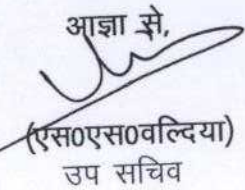 आज्ञा से,
(एस0एस0वल्दिया)
उप सचिव